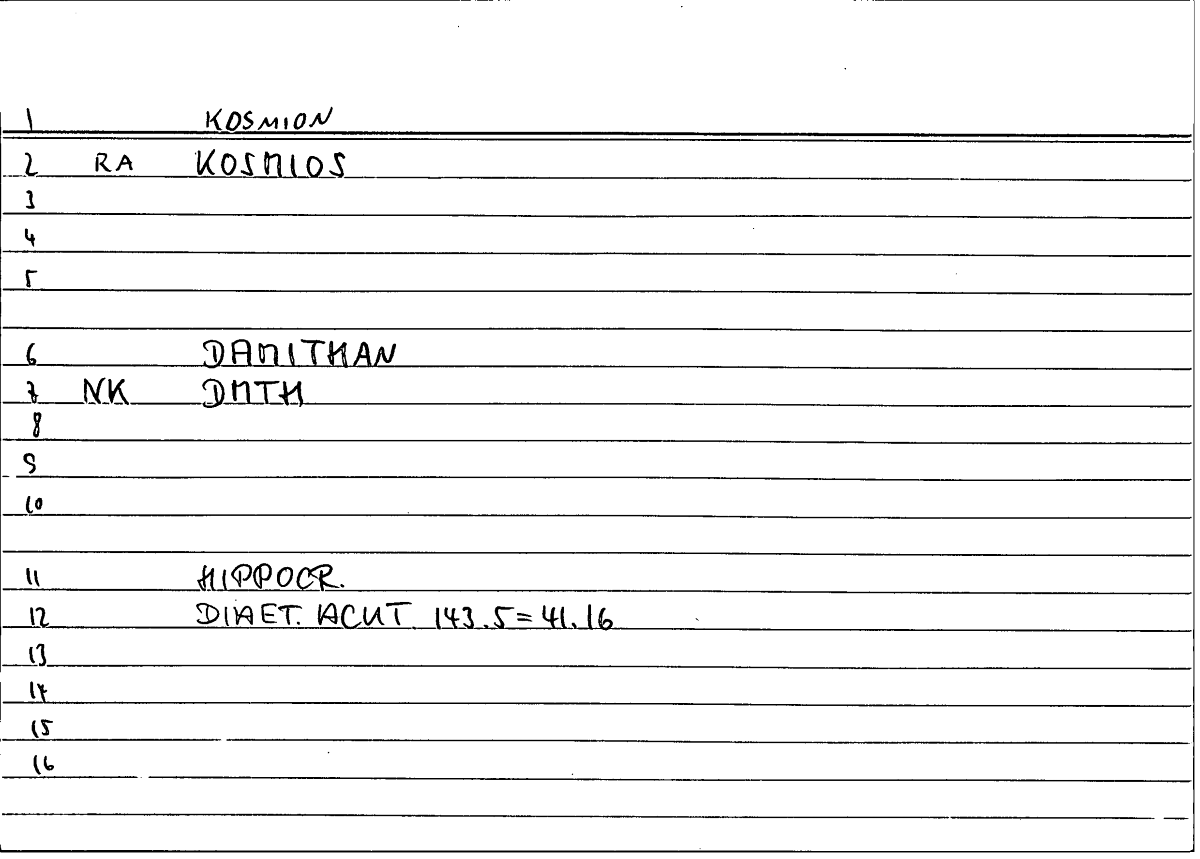 1 KOSMION
2 RA KOSMIOS
3
4
5
6 DAMITHAN
7 NK DMTH
8
9
10
11 HIPPOCR.
12 DIAET. ACUT. 143.5=41.16
13
14
15
16